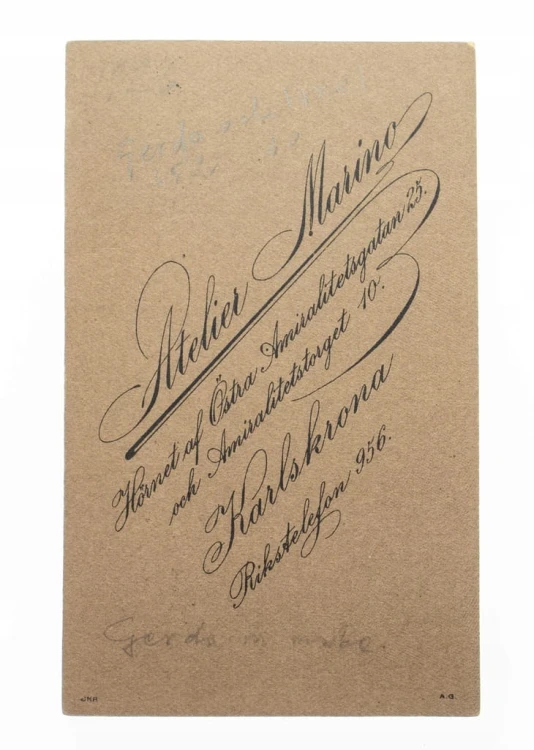 Atelier Marino
Hörnet af Östra Amiralitetsgatan 25.
och Amiralitetstorget 10.
Karlskrona
Rikstelefon 956.
Gerda
A.G.